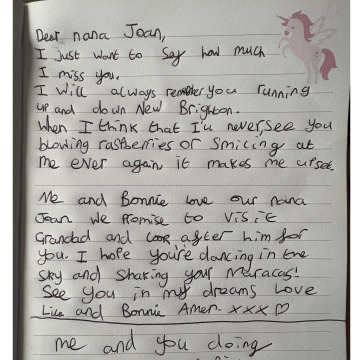 Dear nana Joan,
I just want to say how much
I miss you.
I will always remeber you running
up and down New Brighton.
When I think that I'll never, see you
blowing rastberries or smiling at
me ever again it makes me upset.
Me and Bonnie love our nana
Joan we Promise to visit
Grandad and look after him for
you. I hope you're dancing in the
sky and shaking your maracas!
See you in my dreams love
and Bonnie Amen. xxx ♡
me and you doing